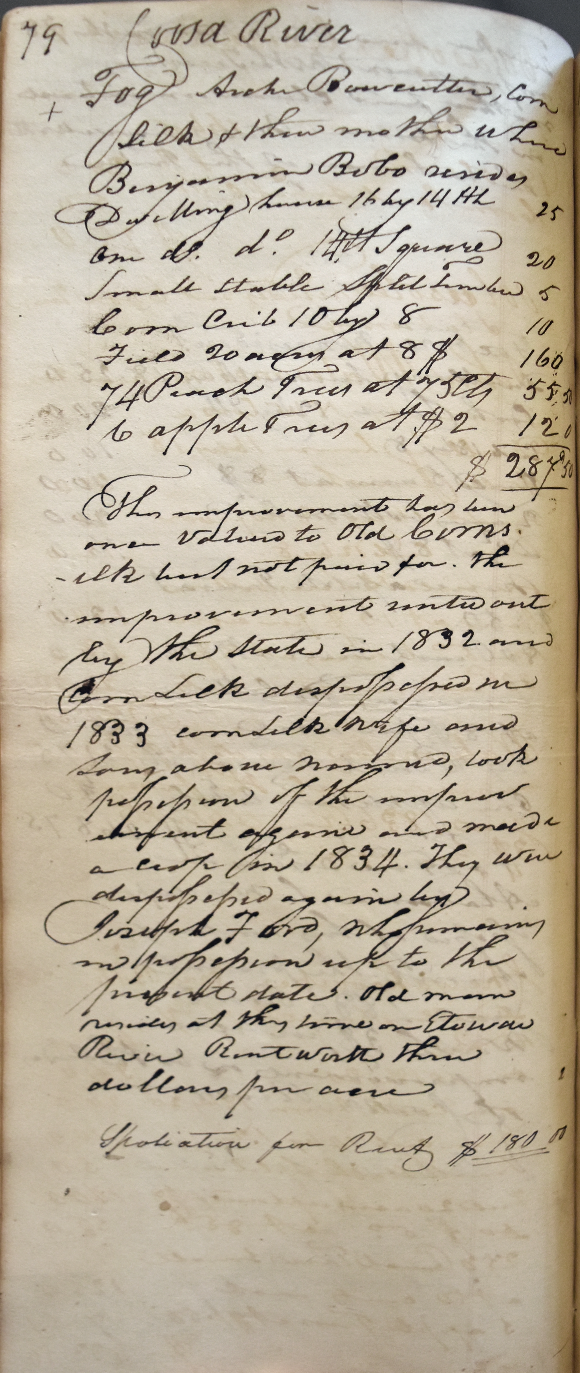 79 Coosa River
+ Fog Archi Bowcutter, Corn
Silk & their mother where
Benjamin Bobo resides
Dwelling house 16 by 14 ft 25
One do. do. 14 ft Square 20
Small stable Split Timber 5
Corn Crib 10 by 8 10
Field 20 acres at 8 $ 160
74 Peach Trees at 75 Cts 55.50
6 apple Trees at $2 12 0
$ 287.50
This improvement has been
once valued to Old Corns
-ilk but not paid for. The
improvement rented out
by the State in 1832 and
Corn Silk dispossessed in
1833 cornsilk wife and
sons above named, took
possession of the improv
ement again and made
a crop in 1834. They were
dispossessed again by
Joseph Ford, who remains
in possession up to the
present date. Old man
resides at this time on Etowah
River Rent worth three
dollars per acre
Spoliation for Rent $ 180.00